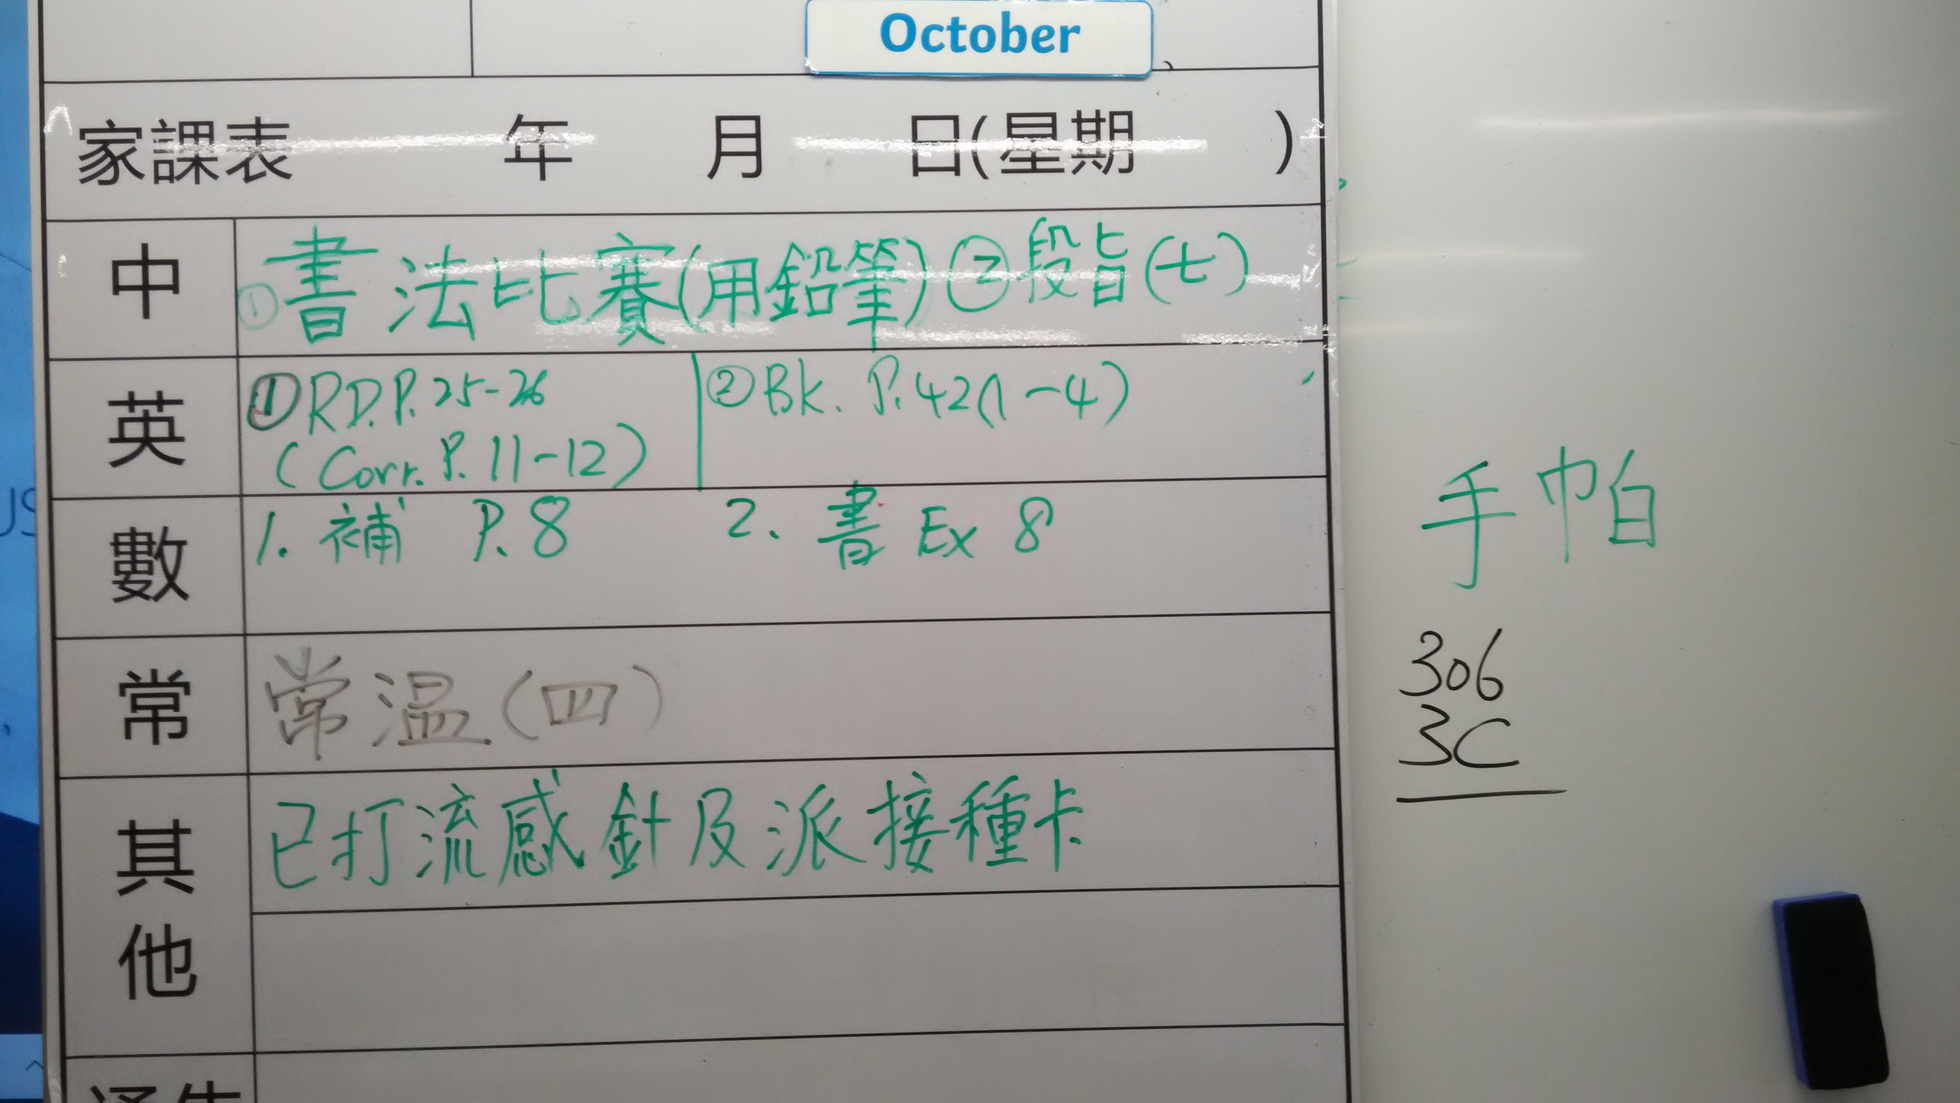 October
家課表 年 月 日(星期 )
中 ①書法比賽(用鉛筆) ②段旨(七)
英 ①RD.P.25-26 ②Bk. P.42(1-4)
(Corr. P. 11-12)
數 1. 補 P. 8 2. 書 Ex 8
常 常温(四)
其他 已打流感針及派接種卡
手帕
306
3C